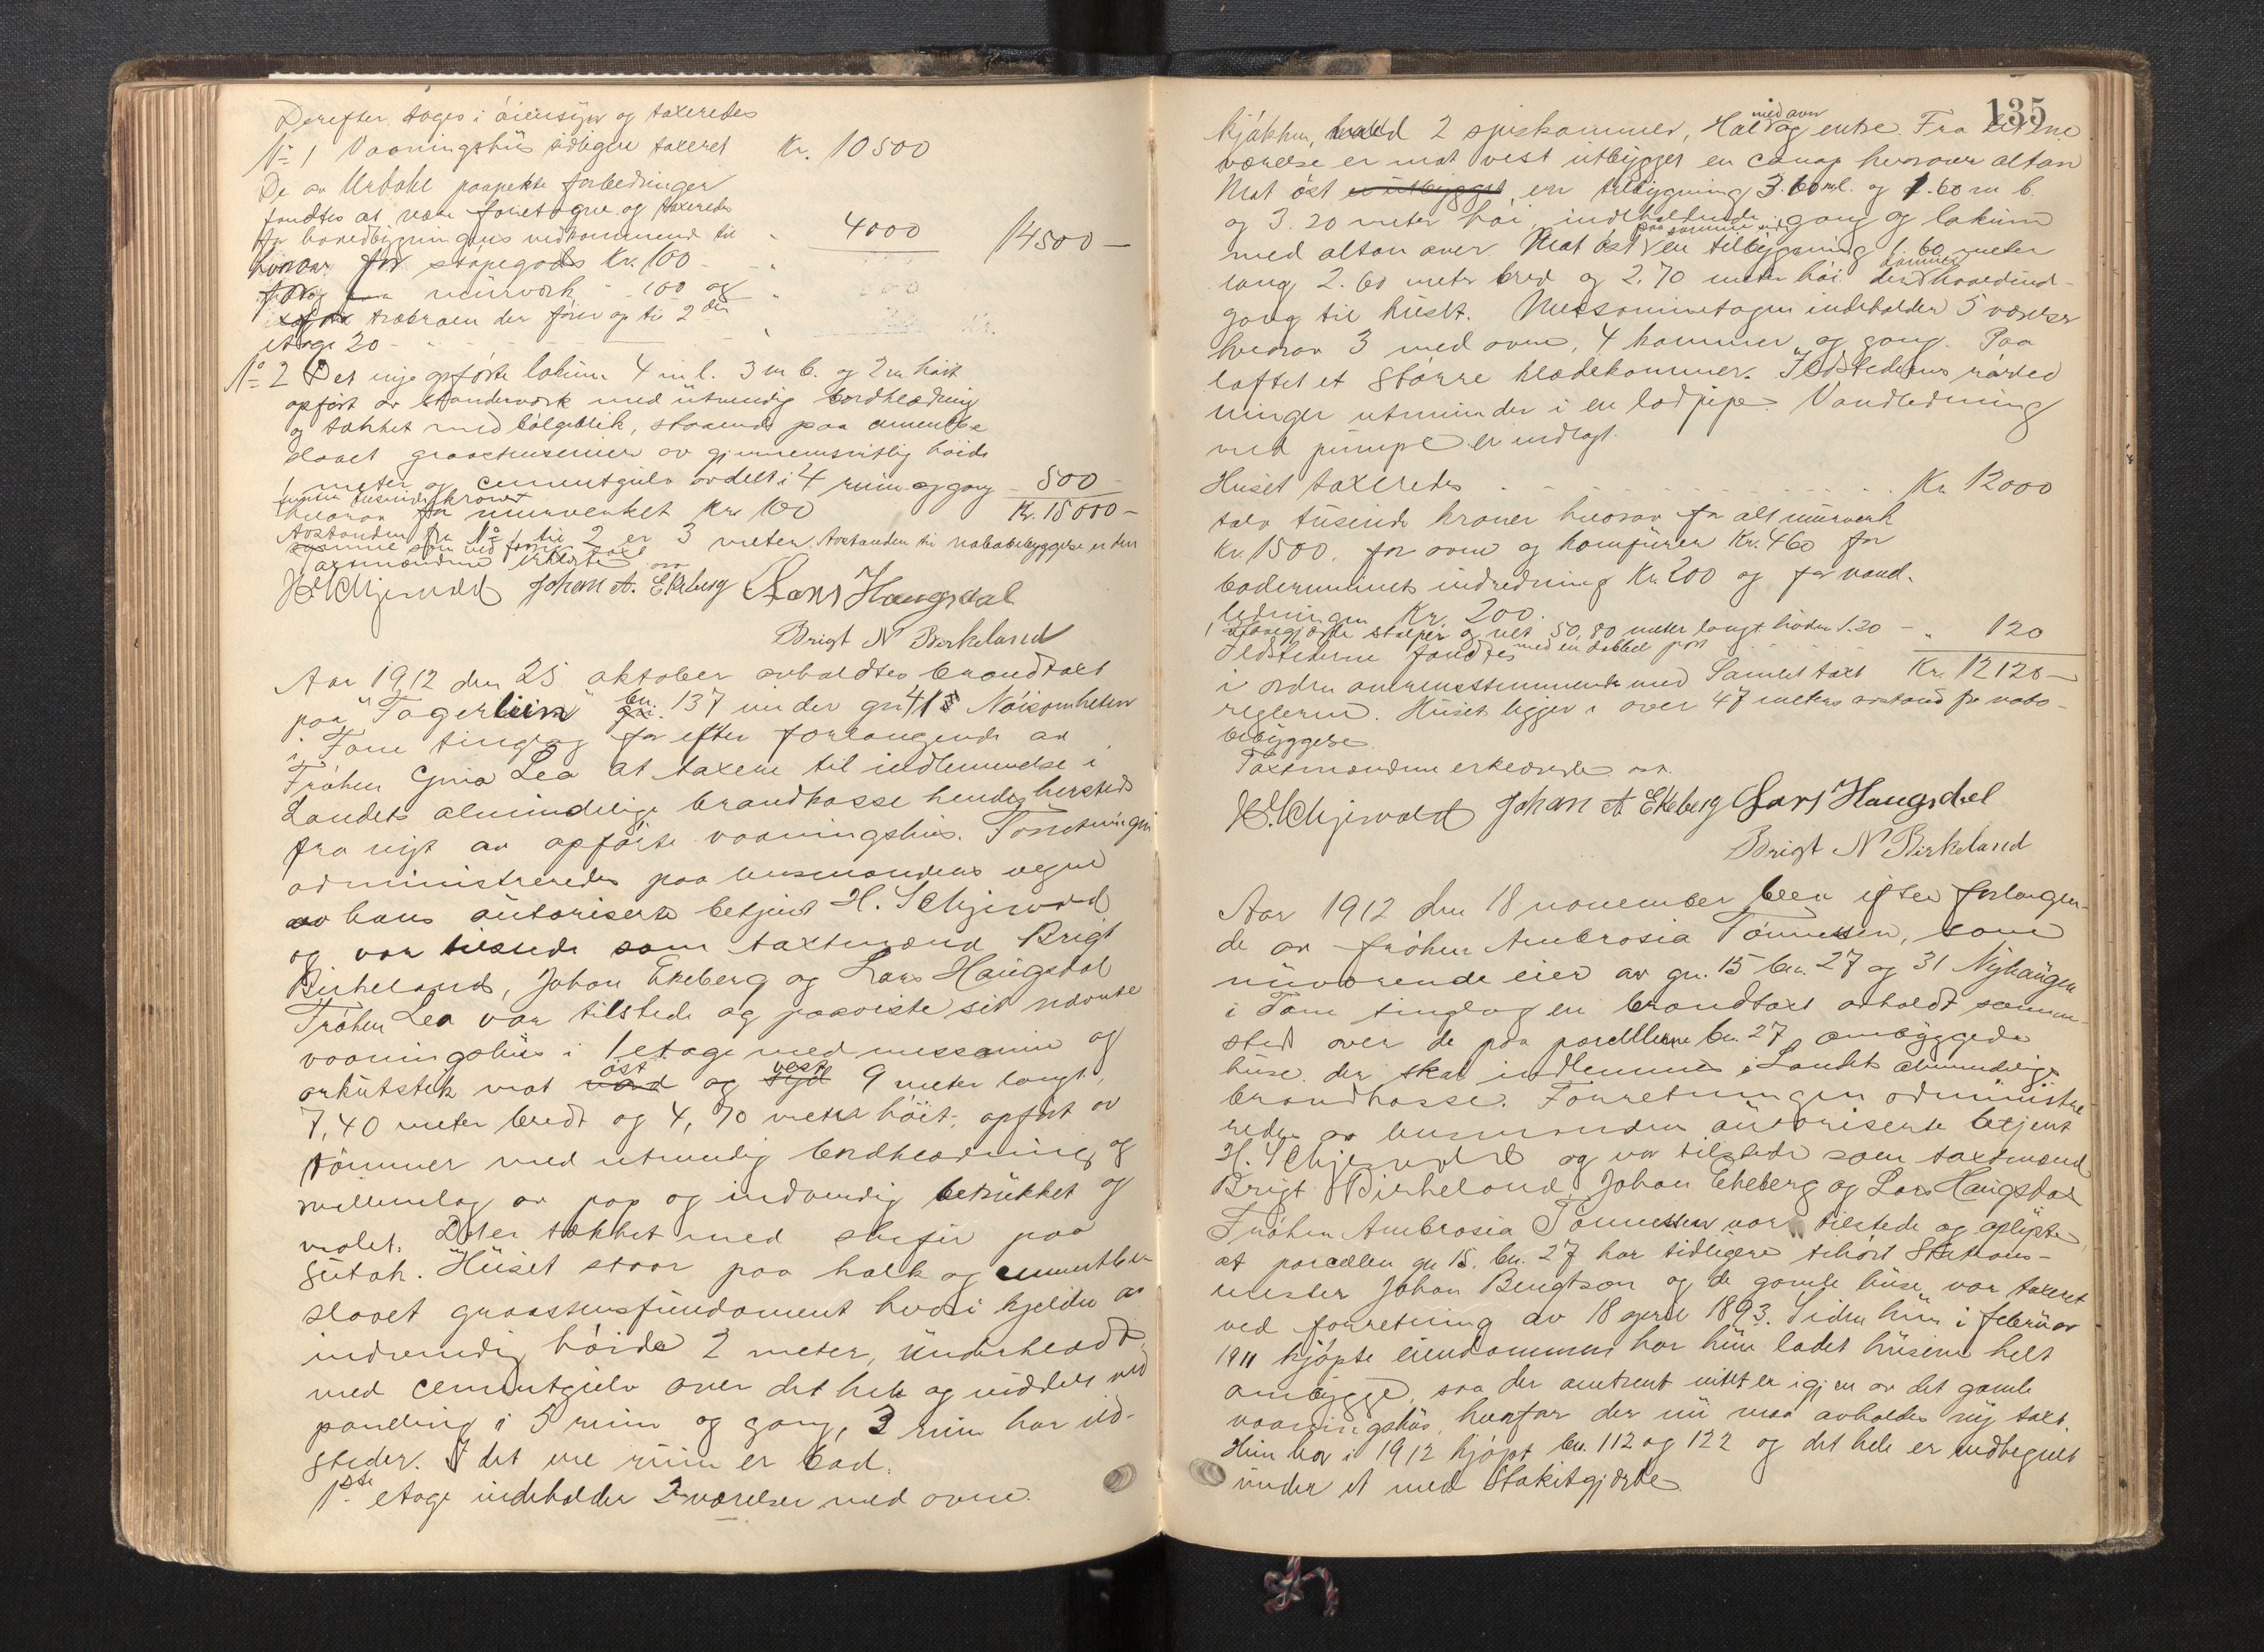 Derefter toges i øiensyn og taxeredes
No 1 Vaaningshus tidligere taxeret Kr. 10500
De av Urdahl paapekte forbedringer
fandtes at være foretagne og taxeredes
for hovedbygningens vedkommende til " 4000 14500 –
hvorav for støpegods Kr. 100 –
murverk – 100 og
træbroen der fører op til 2den
etage 20 –
No 2 Det nye opførte lokum 4 m l. 3 m b. og 2 m høit
opført av standerverk med utvendig bordklædning
og tækket med bølgeblik, staaende paa cement
slaaet graastensmur av gjennemsnitlig høide
1 meter og cementgulv avdelt i 4 rum og gang – 500 –
femten tusinde kroner
hvorav for murverket Kr. 100 Kr. 15000 –
Avstanden fra No 1 til 2 er 3 meter. Avstanden til nabobebyggelse er den
samme som ved forrige taxt
Taxtmændene erklærte osv
H. Schjervold Johan A. Ekeberg Lars Haugsdal
Brigt N Birkeland
Aar 1912 den 25 oktober avholdtes brandtaxt
paa "Fagerlien" bn. 137 under gn 41 Nøisomheten
i Fane tinglag for efter forlangende av
Frøken Gina Lea at taxere til indlemmelse i
Landets almindelige brandkasse hendes hersteds
fra nyt av opførte vaaningshus. Forretningen
administreredes paa lensmandens vegne
av hans autoriserte betjent H. Schjervold
og var tilstede som taxtmænd Brigt
Birkeland, Johan Ekeberg og Lars Haugsdal
Frøken Lea var tilstede og paaviste sit
vaaningshus i 1 etage med messanin og
arkutstik mot øst og vest 9 meter langt,
7,40 meter bredt og 4,70 meter høit, opført av
tømmer med utvendig bordklædning og
mellemlag av pap og indvendig betrukket og
malet. Det er tækket med skifer paa
sutak. Huset staar paa kalk og cement
slaaet graastensfundament hvori kjelder av
indvendig høide 2 meter, underkladt
med cementgulv over det hele og inddelt ved
panding i 5 rum og gang, 3 rum har ild-
steder. I det ene rum er bad.
1ste etage indeholder 2 værelser med ovne.
135
kjøkken, 2 spiskammer, Hal med ovn og entre. Fra det ene
værelse er mot vest utbygget en canap hvorover altan
Mot øst er utbygget en tilbygning 3.60 m l. og 1.60 m b.
og 3.20 meter høi indeholdende gang og lokum
med altan over. Mot øst paa samme side en tilbygning 1.60 meter
lang 2.60 meter bred og 2.70 meter høi der danner hovedind-
gang til huset. Messaninetagen indeholder 5 værelser
hvorav 3 med ovne, 4 kammer og gang. Paa
loftet et større klædekammer. Ildstedernes rørled
ninger utmunder i en lodpipe. Vandledning
med pumpe er indlagt.
Huset taxeredes Kr 12000
tolv tusinde kroner hvorav for alt murverk
Kr. 1500, for ovne og komfurer Kr. 460 for
baderummets indredning Kr. 200 og for vand-
ledningen Kr. 200.
1 stolper og net 50,80 meter langt høide 1.20 – " 120
med en dobbelt port
Ildstederne fandtes
i orden overensstemmende med Samlet taxt Kr. 12120 –
reglerne. Huset ligger i over 47 meters avstand fra nabo-
bebyggelse.
Taxtmændene erklærede osv.
H. Schjervold Johan A Ekeberg Lars Haugsdal
Brigt N Birkeland
Aar 1912 den 18 november blev efter forlangen-
de av frøken Ambrosia Tønnessen, som
nuværende eier av gn. 15 bn. 27 og 31 Nyhaugen
i Fane tinglag en brandtaxt avholdt samme-
sted over de paa parcellerne bn. 27 ombyggede
huse der skal indlemmes i Landets almindelige
brandkasse. Forretningen administre-
redes av lensmandens autoriserte betjent
H. Schjervold og var tilstede som taxtmænd
Brigt Birkeland, Johan Ekeberg og Lars Haugsdal
Frøken Ambrosia Tønnessen var tilstede og oplyste
at parcellen gn 15. bn. 27 har tidligere tilhørt Stations-
mester Johan Bengtson og de gamle huse var taxeret
ved forretning av 18 april 1893. Siden hun i februar
1911 kjøpte eiendommen har hun ladet husene helt
ombygge, saa der omtrent intet er igjen av det gamle
vaaningshus, hvorfor der nu maa avholdes ny taxt.
Hun har i 1912 kjøpt bn. 112 og 122 og det hele er indhegnet
under et med Stakitgjærde.